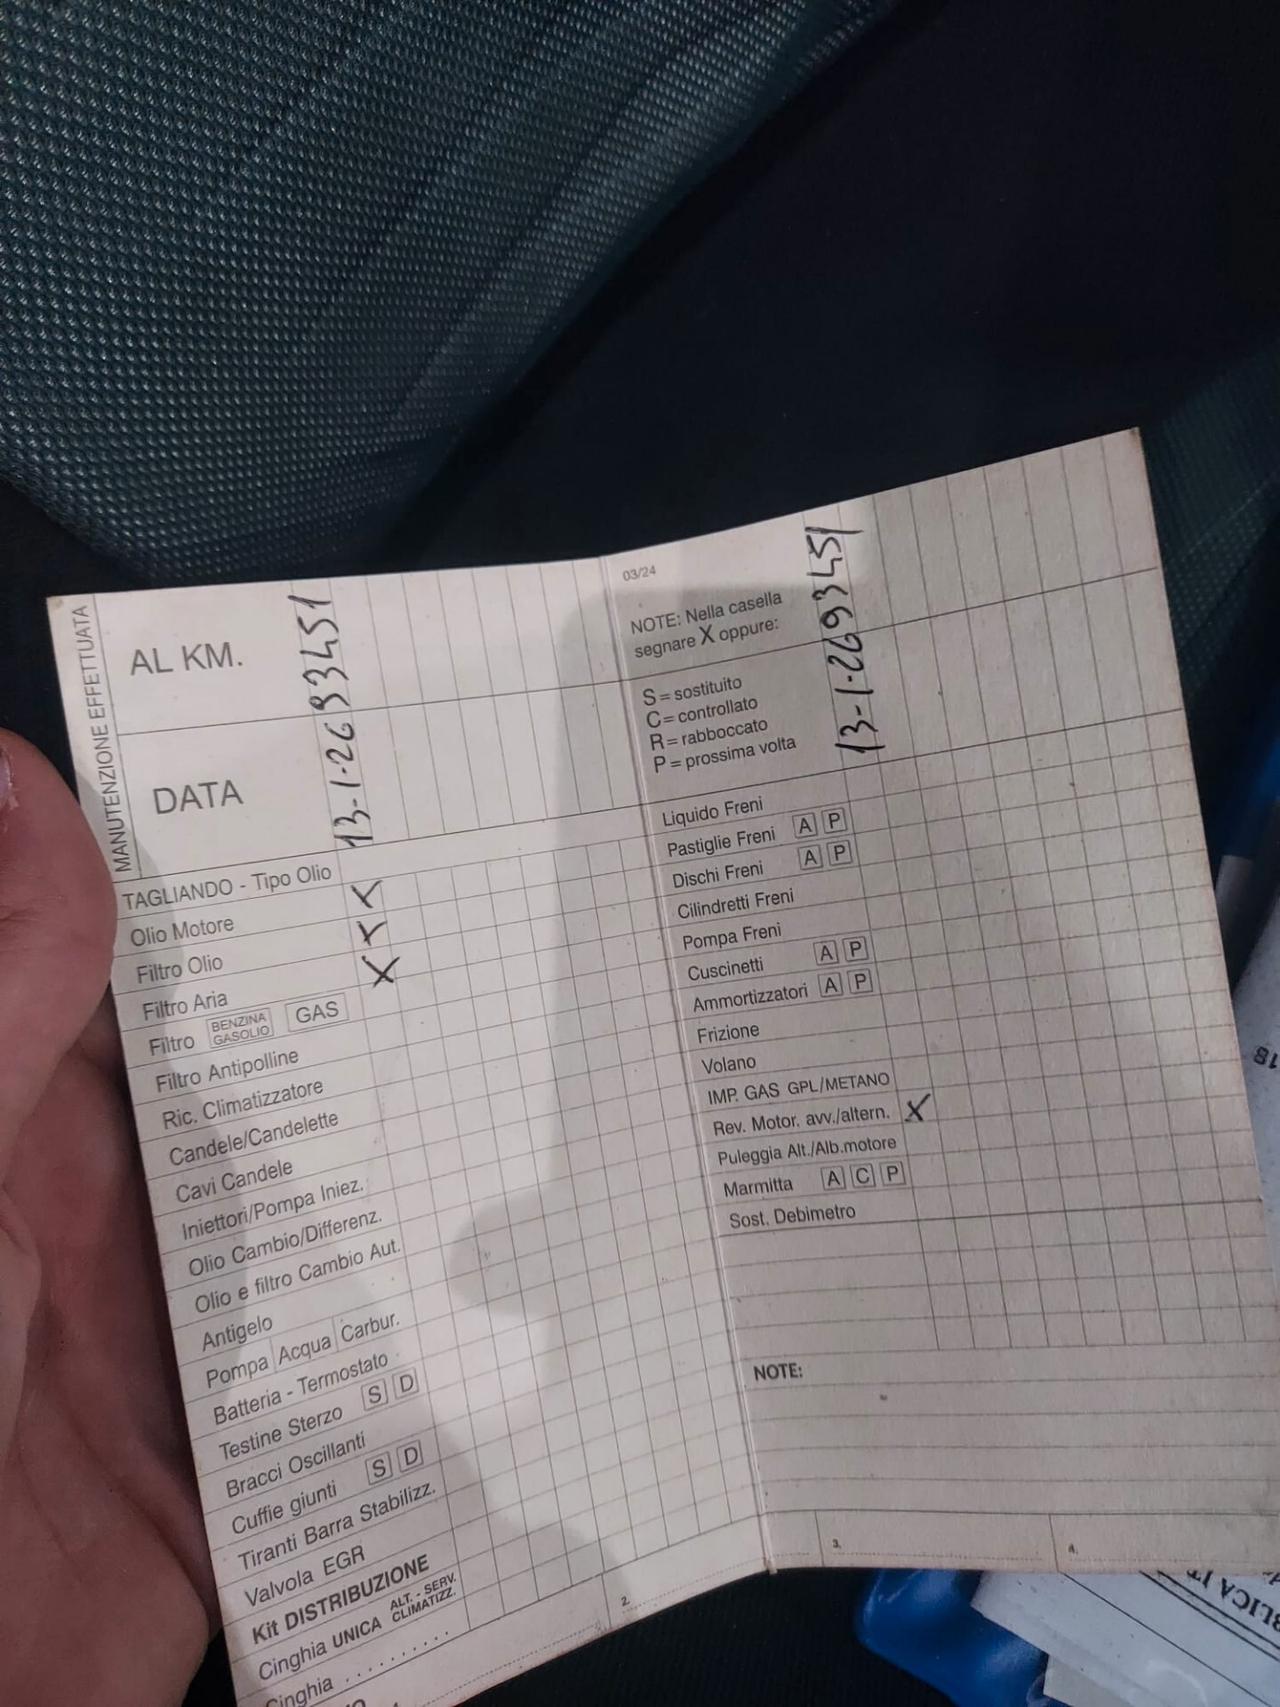 MANUTENZIONE EFFETTUATA
AL KM.
93451
DATA
13-1-26
TAGLIANDO - Tipo Olio
Olio Motore X
Filtro Olio X
Filtro Aria X
Filtro BENZINA GASOLIO GAS
Filtro Antipolline
Ric. Climatizzatore
Candele/Candelette
Cavi Candele
Iniettori/Pompa Iniez.
Olio Cambio/Differenz.
Olio e filtro Cambio Aut.
Antigelo
Pompa Acqua Carbur.
Batteria - Termostato
Testine Sterzo S D
Bracci Oscillanti
Cuffie giunti S D
Tiranti Barra Stabilizz.
Valvola EGR
Kit DISTRIBUZIONE
Cinghia UNICA ALT. - SERV. CLIMATIZZ.
Cinghia ..........
2.
03/24
NOTE: Nella casella
segnare X oppure:
93451
S = sostituito
C = controllato
R = rabboccato
P = prossima volta
13-1-26
Liquido Freni
Pastiglie Freni A P
Dischi Freni A P
Cilindretti Freni
Pompa Freni
Cuscinetti A P
Ammortizzatori A P
Frizione
Volano
IMP. GAS GPL/METANO
Rev. Motor. avv./altern. X
Puleggia Alt./Alb.motore
Marmitta A C P
Sost. Debimetro
NOTE:
3.
4.
18